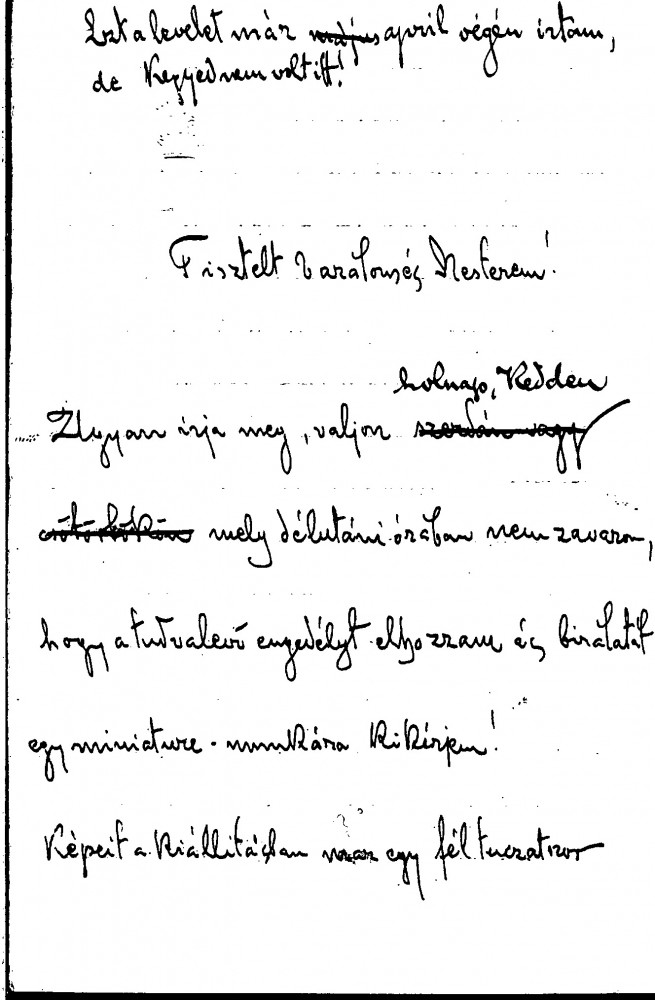 Ezt a levelet már május april végén irtam,
de Kegyed nem volt itt!
Tisztelt Barátom és Mesterem!
holnap, Kedden
Ugyan irja meg, valjon szerdán vagy
csötörtökön mely délutáni órában nem zavarom,
hogy a tudvalevő engedélyt elhozzam és birálatát
egy miniature-munkára kikérjem!
Képeit a kiállitásban már egy fél tuczatszor